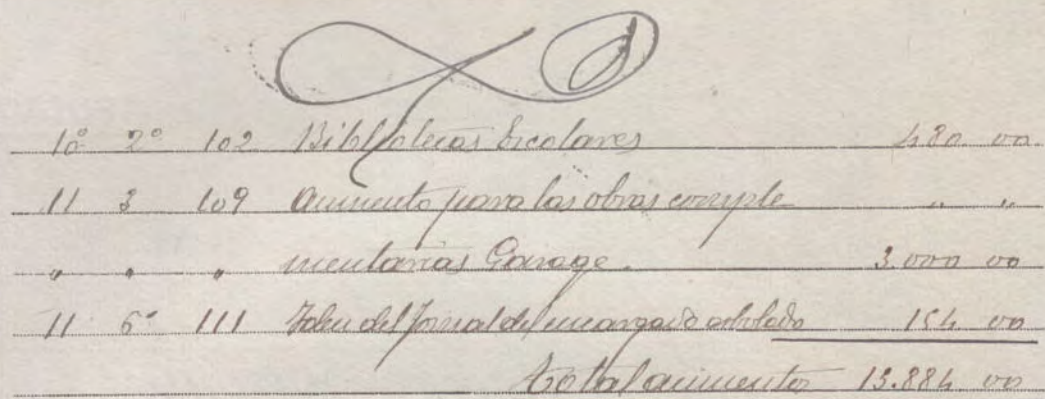 10º 2º 102 Bibliotecas Escolares 480 00.
11 3 109 Aumento para las obras comple " "
" " " mentarias Garage. 3.000 00
11 6º 111 del Jornal del encargado arbolado 154 00
Total aumentos 13.884 00